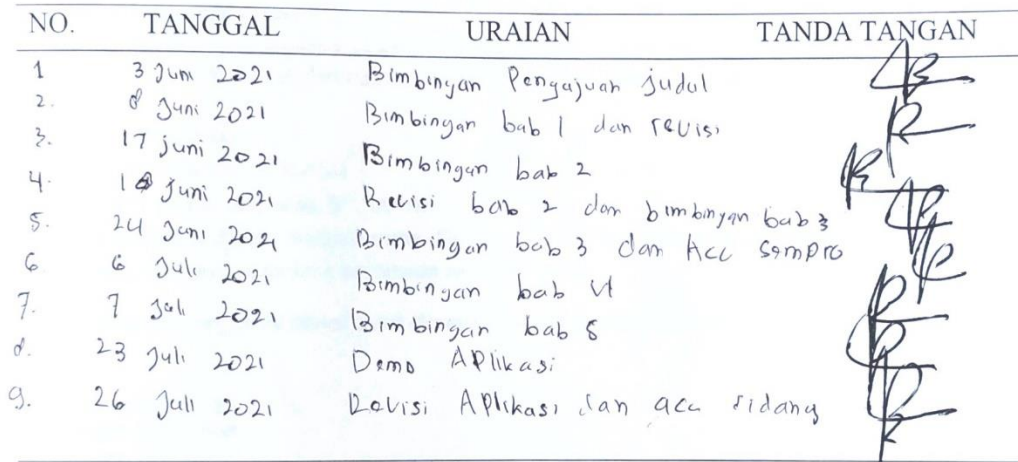 NO. TANGGAL URAIAN TANDA TANGAN
1 3 Juni 2021 Bimbingan Pengajuan judul
2. 8 Juni 2021 Bimbingan bab 1 dan revisi
3. 17 juni 2021 Bimbingan bab 2
4. 18 Juni 2021 Revisi bab 2 dan bimbingan bab 3
5. 24 Juni 2021 Bimbingan bab 3 dan Acc Sempro
6 6 Juli 2021 Bimbingan bab
7. 7 Juli 2021 Bimbingan bab
8. 23 Juli 2021 Demo APlikasi
9. 26 Juli 2021 Revisi APlikasi dan acc sidang